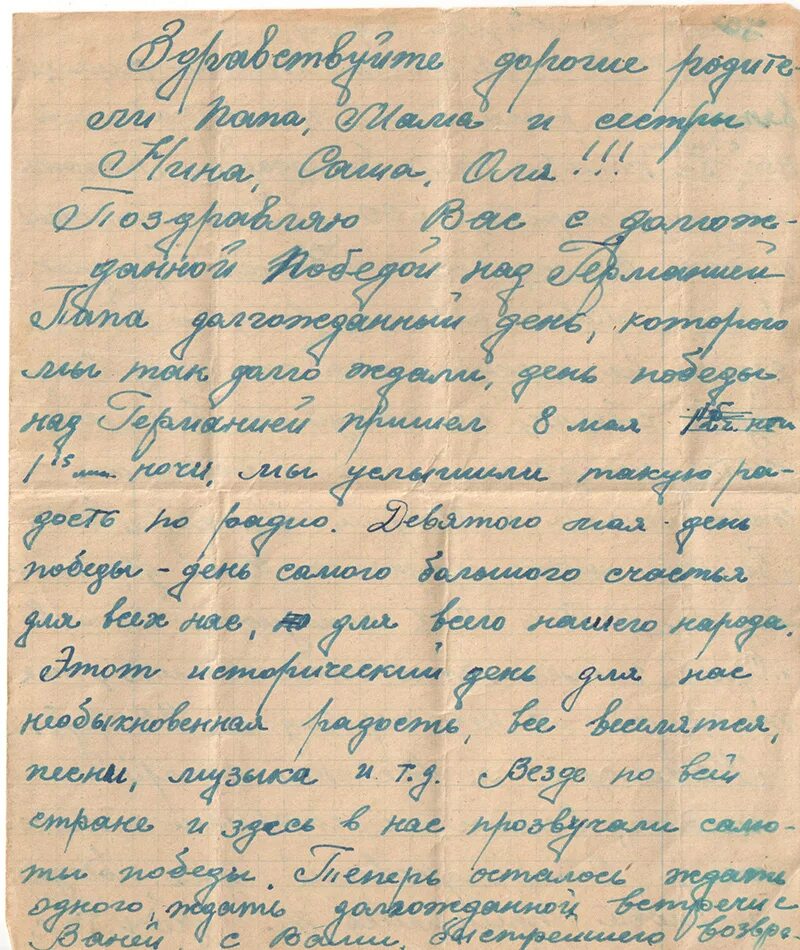 Здравствуйте дорогие родите-
ли Папа, Мама и сестры
Нина, Саша, Оля!!!
Поздравляю Вас с долгож-
данной Победой над Германией
Папа долгожданный день, которого
мы так долго ждали, день победы
над Германией пришел 8 мая
1 15 мин ночи, мы услышили такую ра-
дость по радио. Девятого мая - день
победы - день самого большого счастья
для всех нас, для всего нашего народа.
Этот исторический день для нас
необыкновенная радость, все веселятся,
песни, музыка и т.д. Везде по всей
стране и здесь в нас прозвучали салю-
ты победы. Теперь осталось ждать
одного, ждать долгожданной встречи с
Ваней, с Вами, быстрейшего возвра-